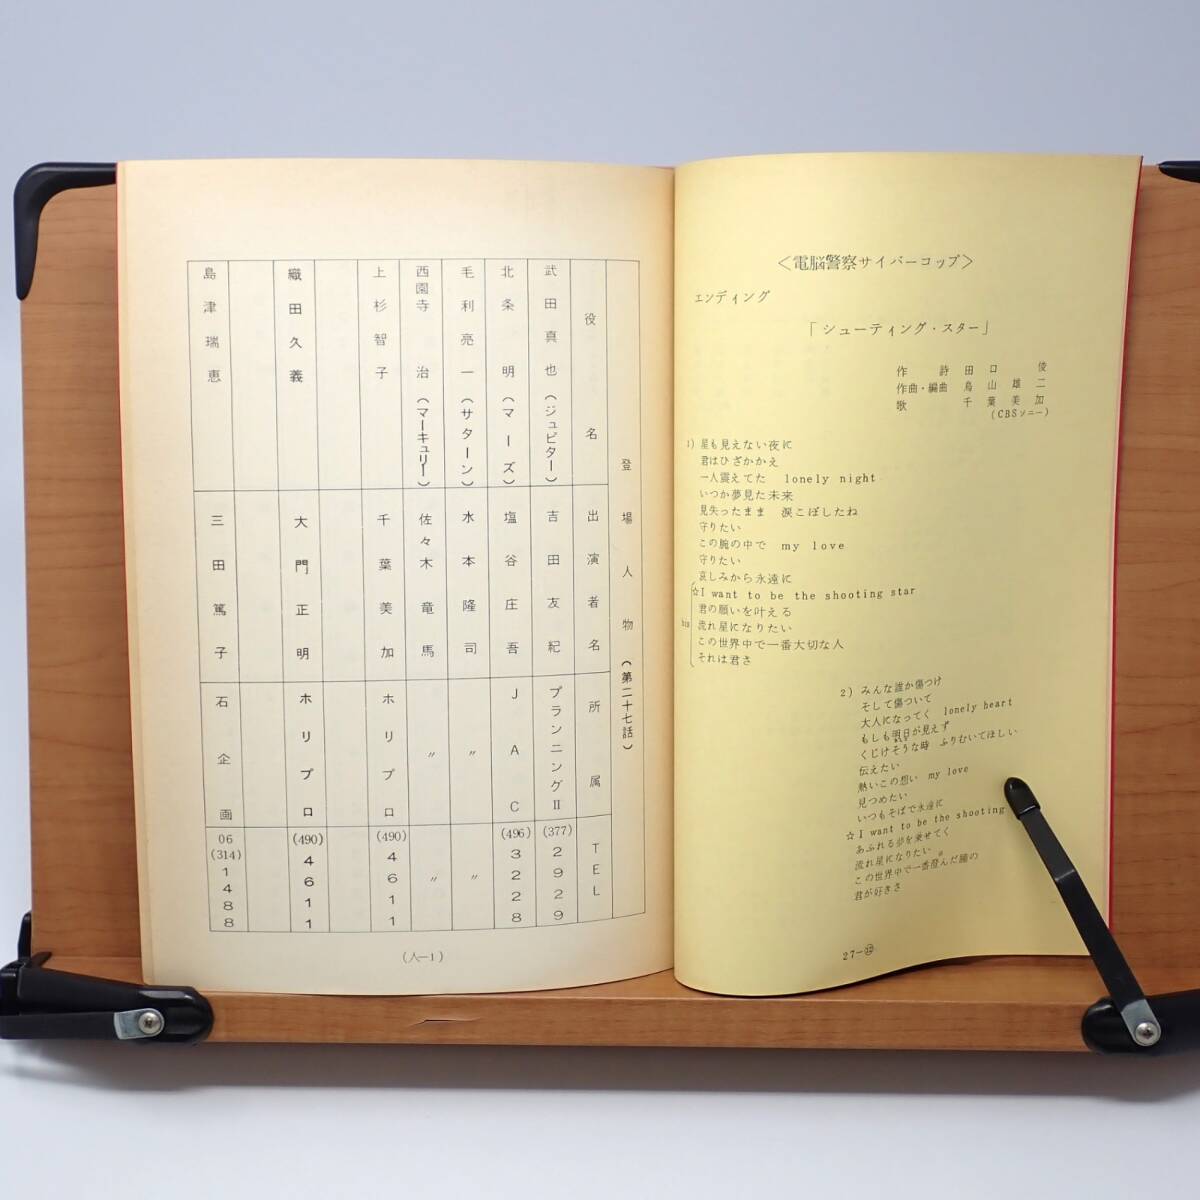 登場人物(第二十七話)
役名 出演者名 所属 TEL
武田真也(ジュピター) 吉田友紀 プランニングⅡ (377)2929
北条明(マーズ) 塩谷庄吾 JAC (496)3228
毛利亮一(サターン) 水本隆司 〃 〃
西園寺治(マーキュリー) 佐々木竜馬 〃 〃
上杉智子 千葉美加 ホリプロ (490)4611
織田久義 大門正明 ホリプロ (490)4611
島津瑞恵 三田篤子 石企画 06(314)1488
(人-1)
<電脳警察サイバーコップ>
エンディング
「シューティング・スター」
作詩 田口俊
作曲・編曲 鳥山雄二
歌 千葉美加
(CBSソニー)
1)星も見えない夜に
君はひざかかえ
一人震えてた lonely night
いつか夢見た未来
見失ったまま 涙こぼしたね
守りたい
この腕の中で my love
守りたい
哀しみから永遠に
☆I want to be the shooting star
君の願いを叶える
bis 流れ星になりたい
この世界中で一番大切な人
それは君さ
2)みんな誰か傷つけ
そして傷ついて
大人になってく lonely heart
もしも明日が見えず
くじけそうな時 ふりむいてほしい
伝えたい
熱いこの想い my love
見つめたい
いつもそばで永遠に
☆I want to be the shooting
あふれる夢を乗せてく
流れ星になりたい
この世界中で一番澄んだ瞳の
君が好きさ
27-⑫